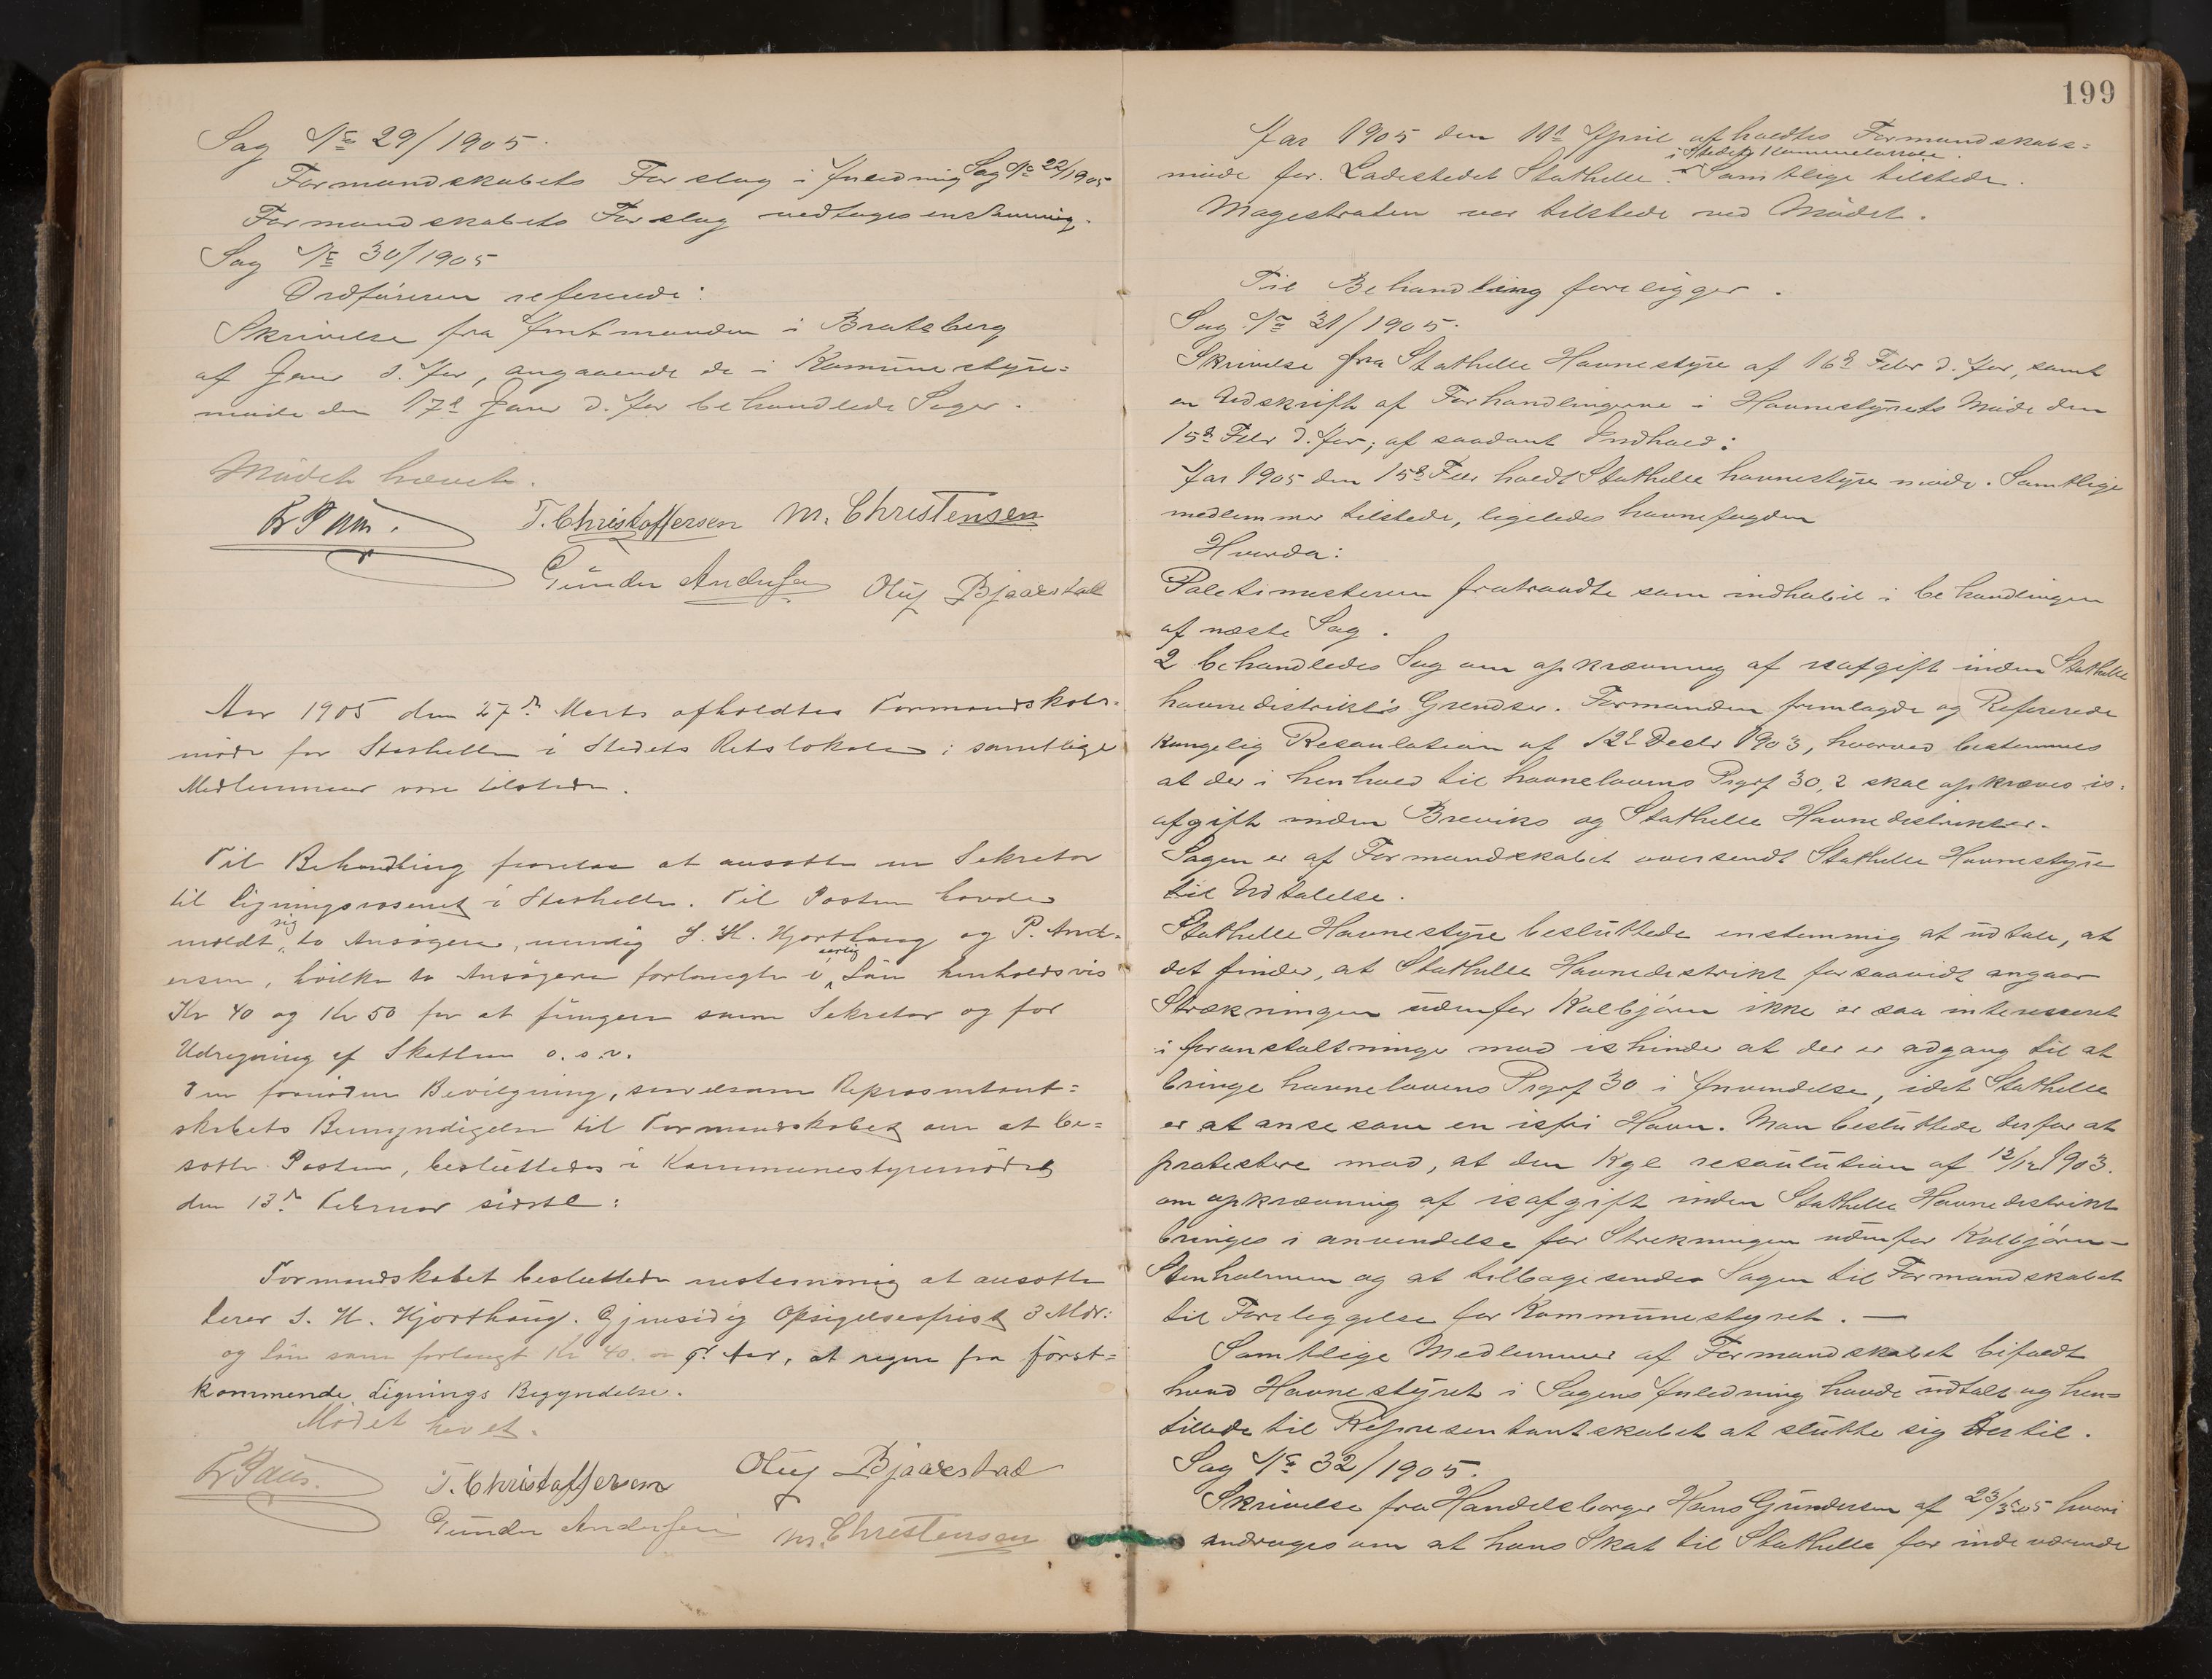 Sag No 29/1905.
Formandskabets Forslag i Anledning Sag No 22/1905
Formandskabets Forslag vedtoges enstemmig.
Sag No 30/1905
Ordføreren refererede:
Skrivelse fra Amtmanden i Bratsberg
af Janr d. Aar, angaaende de i Komunestyre=
møde den 17de Janr d. Aar behandlede Sager.
Mødet hævet.
T. Christoffersen M. Christensen
Gunder Andersen Oluf Bjaarstad
Aar 1905 den 27de Marts afholdtes Formandskabs-
møde for Stathelle i Stedets Retslokale; samtlige
Medlemmer vare tilstede.
Til Behandling forelaa at ansætte en Sekretær
til ligningsvæsenet i Stathelle. Til Posten havde
meldt sig to Ansøgere, nemlig S. H. Hjorthaug og P. And-
ersen, hvilke to Ansøgere forlangte i aarlig Løn henholdsvis
Kr 40 og Kr 50 for at fungere som Sekretær og for
Udregning af Skatten o.s.v.
Den fornødne Bevilgning, saavelsom Repræsentant=
skabets Bemyndigelse til Formandskabet om at be=
sætte Posten, besluttedes i Kommunestyremødet
den 13de Februar sidstl:
Formandskabet besluttede enstemmig at ansætte
lærer S. H. Hjorthaug. Gjensidig Opsigelsesfrist 3 Mdr:
og Løn som forlangt Kr 40 pr Aar, at regne fra først=
kommende Lignings Begyndelse.
Mødet hævet.
T. Christoffersen Oluf Bjaarstad
Gunder Andersen M. Christensen
199
Aar 1905 den 11te April afholdtes Formandskabs=
i Stedets Kommunelokale
møde for Ladestedet Stathelle. Samtlige tilstede.
Magestraten var tilstede ved Mødet.
Til Behandling foreligger.
Sag No 31/1905.
Skrivelse fra Stathelle Havnestyre af 16de Febr d. Aar, samt
en Udskrift af Forhandlingerne i Havnestyrets Møde den
15de Febr d. Aar, af saadant Indhold:
Aar 1905 den 15de Febr holdt Stathelle havnestyre møde. Samtlige
medlemmer tilstede, ligeledes havnefogden
Hvorda:
Politimesteren fratraadte som indhabil i behandlingen
af næste Sag.
2 behandledes Sag om opkrævning af isafgift inden Stathelle
havnedistrikts Grendser. Formanden fremlagde og Refererede
Kongelig Resoulation af 12te Decbr 1903, hvorved bestemmes
at der i henhold til havnelovens Prgrf 30,2 skal opkræves is-
afgift inden Breviks og Stathelle Havnedistrikter.
Sagen er af Formandskabet oversendt Stathelle Havnestyre
til Udtalelse.
Stathelle Havnestyre besluttede enstemmig at udtale, at
det finder, at Stathelle Havnedistrikt forsaavidt angaar
Strækningen udenfor Kalbjørn ikke er saa interesseret
i foranstaltninger mod ishinder at der er adgang til at
bringe havnelovens Prgrf 30 i Anvendelse, idet Stathelle
er at anse som en isfri Havn. Man besluttede derfor at
protestere mod, at den Kgl resoulution af 12/12 1903.
om opkrævning af isafgift inden Stathelle Havnedistrikt
bringes i anvendelse for Strekningen udenfor Kalbjørn-
Stenholmen og at tilbagesende Sagen til Formandskabet
til Foreleggelse for Kommunestyret. —
Samtlige Medlemmer af Formandskabet bifaldt
hvad Havnestyret i Sagens Anledning havde udtalt og hen=
stillede til Repræsentantskabet at slutte sig dertil.
Sag No 32/1905.
Skrivelse fra Handelsborger Hans Gundersen af 23/3 05 hvori
andrages om at hans Skat til Stathelle for indeværende